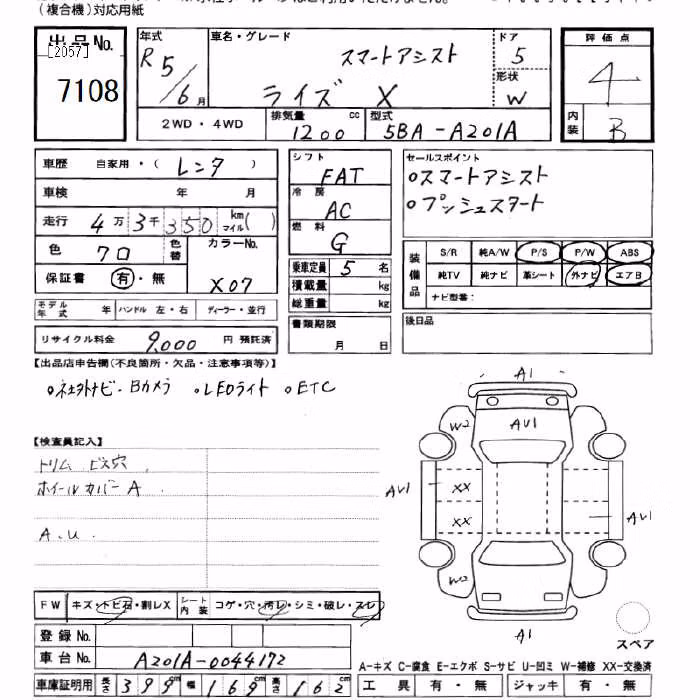 (複合機)対応用紙
出品No.
[2057]
7108
年式
R5/6月
車名・グレード
スマートアシスト
ライズ X
ドア
5
形状
W
2WD・4WD
排気量
1200 cc
型式
5BA-A201A
評価点
4
内装
B
車歴 自家用・(レンタ)
車検 年 月
走行 4万3千350 km マイル( )
色 クロ
色替
カラーNo.
X07
保証書 有・無
モデル年式 年 ハンドル 左・右 ディーラー・並行
リサイクル料金 9,000 円 預託済
シフト
FAT
冷房
AC
燃料
G
乗車定員 5 名
積載量 kg
総重量 kg
書類期限
月 日
セールスポイント
○スマートアシスト
○プッシュスタート
装備品
S/R 純A/W P/S P/W ABS
純TV 純ナビ 革シート 外ナビ エアB
ナビ型番:
後日品
【出品店申告欄(不良箇所・欠品・注意事項等)】
○社外ナビ・Bカメラ ○LEDライト ○ETC
【検査員記入】
トリム ビス穴
ホイールカバーA
A.U
A1
W2
AU1
AU1
XX
XX
AU1
W2
A1
スペア
FW キズ・トビ石・割レX シート内装 コゲ・穴・汚レ・シミ・破レ・スレ
登録No.
車台No. A201A-0044172
車庫証明用 長さ 399cm 幅 169cm 高さ 162cm
A-キズ C-腐食 E-エクボ S-サビ U-凹ミ W-補修 XX-交換済
工具 有・無 ジャッキ 有・無